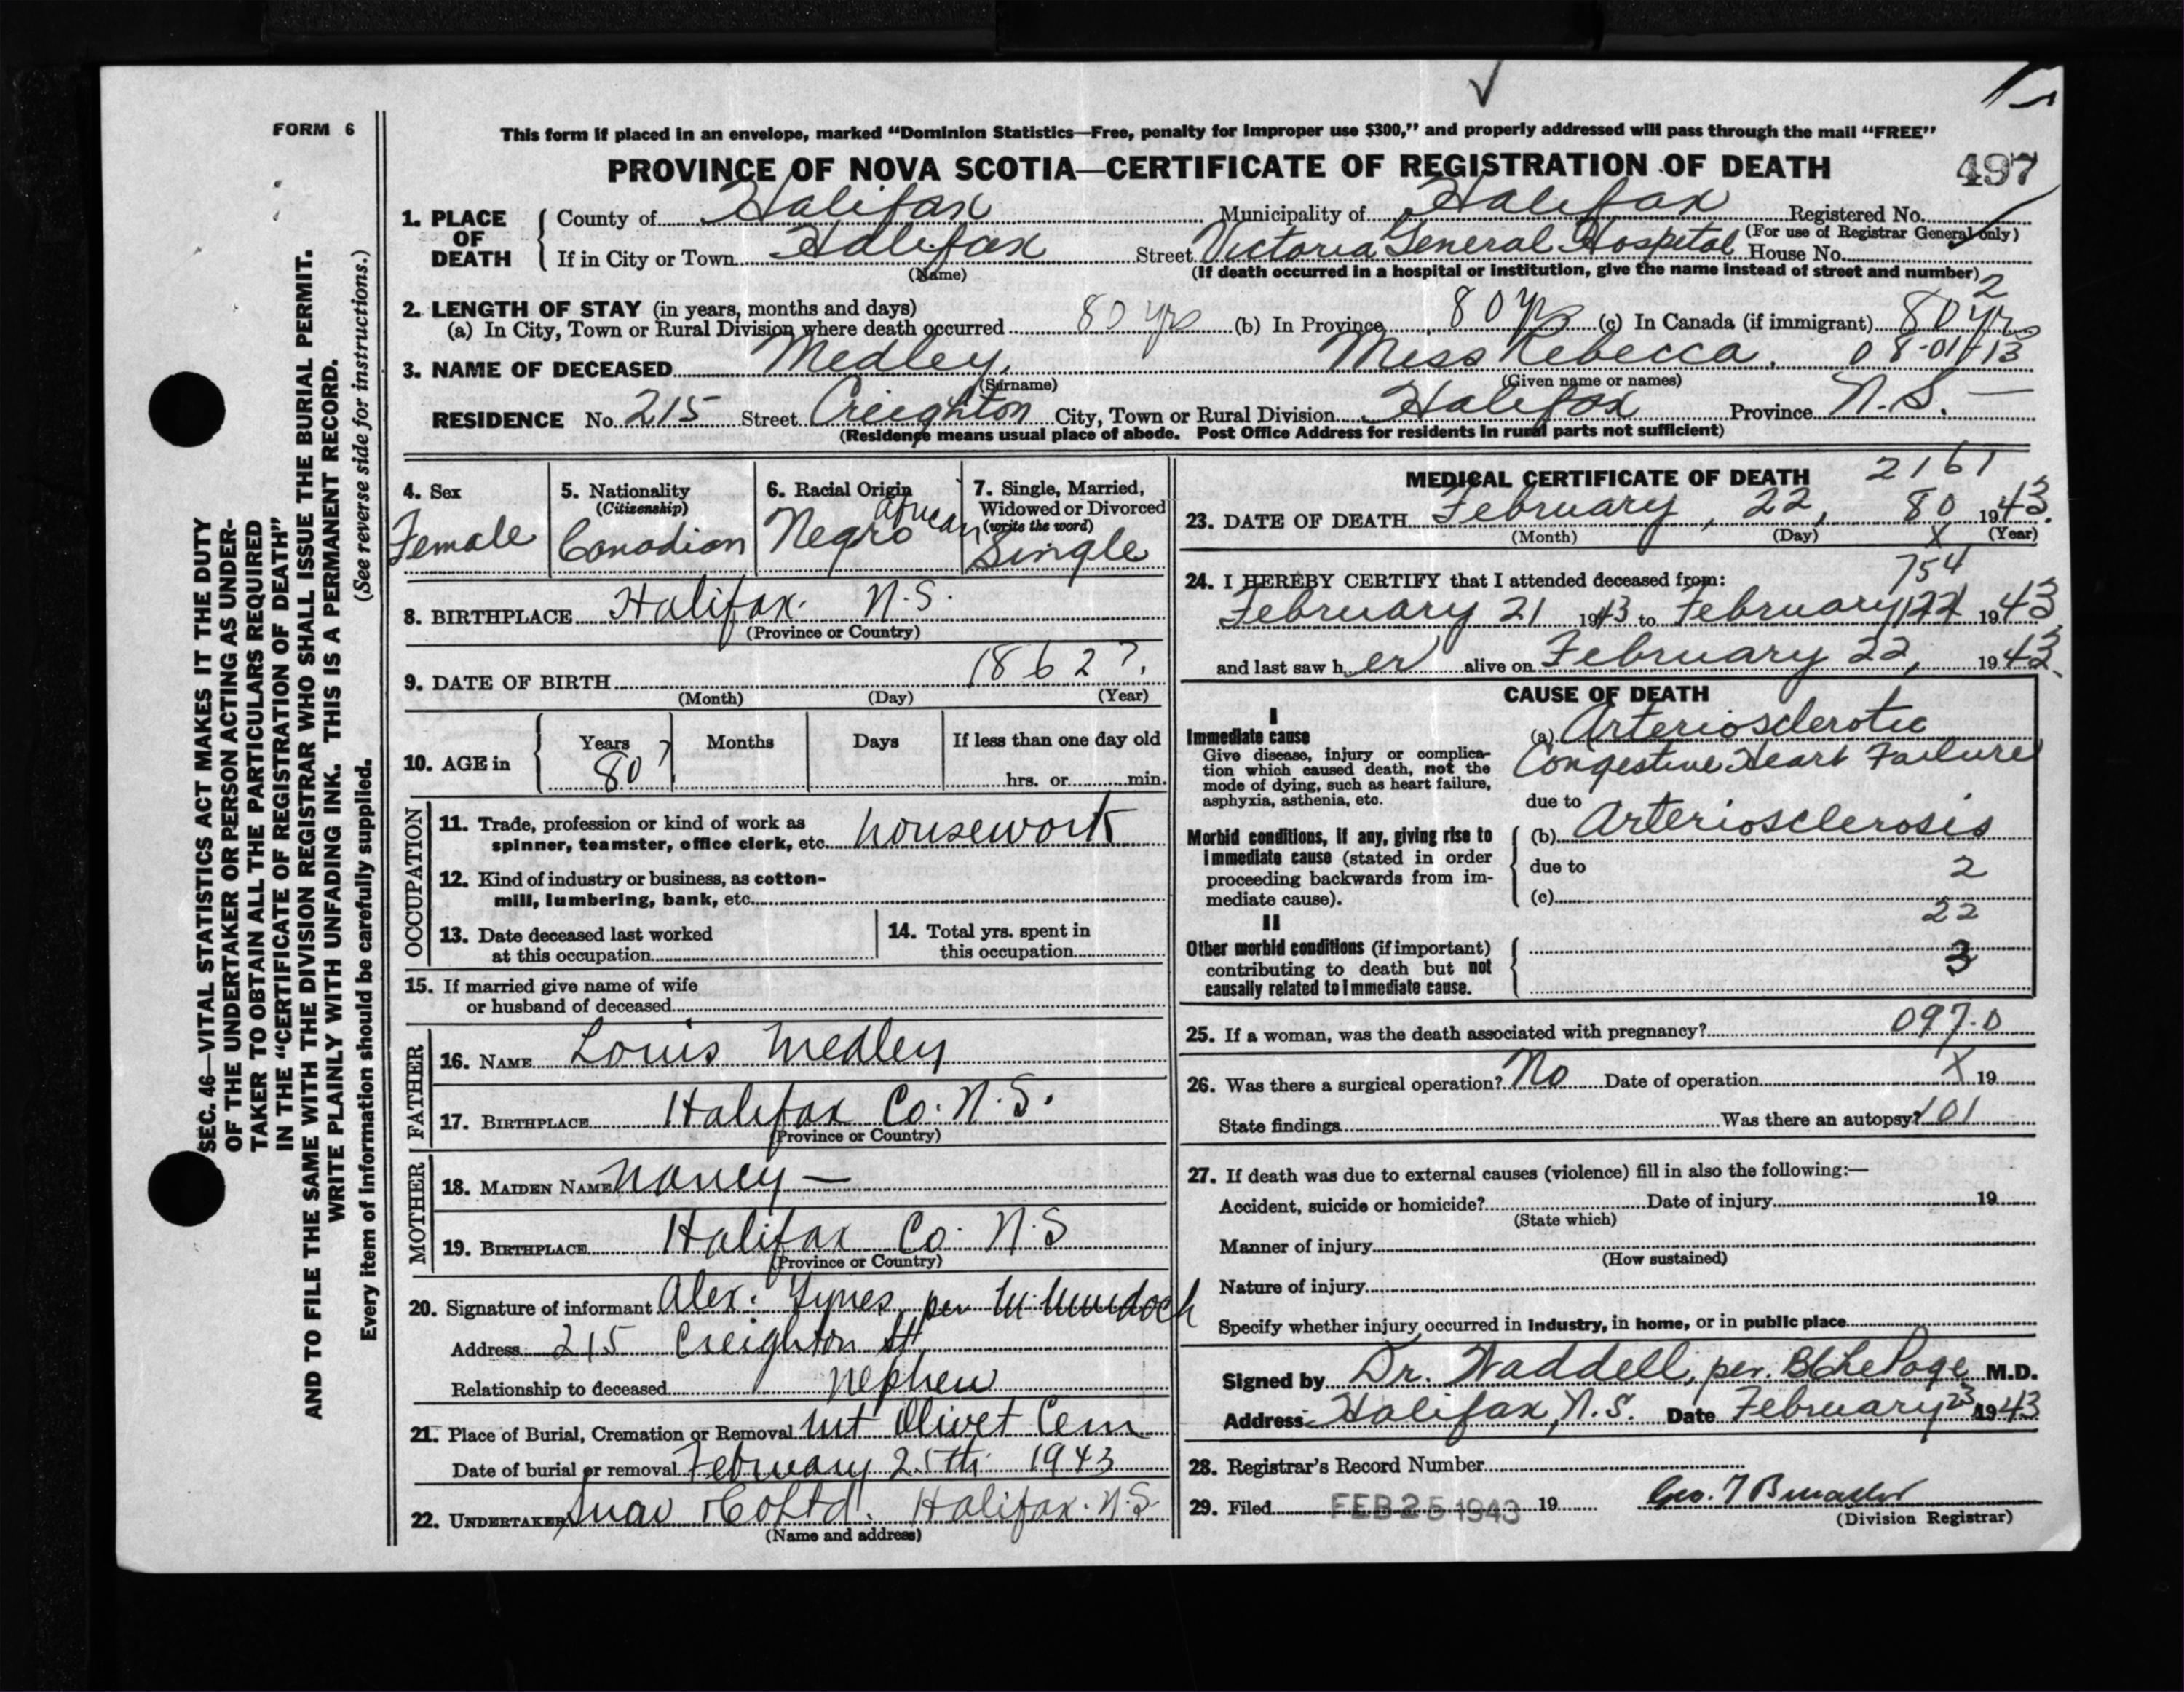 FORM 6
This form if placed in an envelope, marked "Dominion Statistics—Free, penalty for improper use $300," and properly addressed will pass through the mail "FREE"
PROVINCE OF NOVA SCOTIA—CERTIFICATE OF REGISTRATION OF DEATH
497
1. PLACE OF DEATH
County of Halifax Municipality of Halifax Registered No.
(For use of Registrar General only)
If in City or Town Halifax Street Victoria General Hospital House No.
(Name) (If death occurred in a hospital or institution, give the name instead of street and number)
2
2. LENGTH OF STAY (in years, months and days)
(a) In City, Town or Rural Division where death occurred 80 yrs (b) In Province 80 yrs (c) In Canada (if immigrant) 80 yrs
3. NAME OF DECEASED Medley, Miss Rebecca. 08-01-13
(Surname) (Given name or names)
RESIDENCE No. 215 Street Creighton City, Town or Rural Division Halifax Province N.S.
(Residence means usual place of abode. Post Office Address for residents in rural parts not sufficient)
4. Sex
Female
5. Nationality
(Citizenship)
Canadian
6. Racial Origin
African
Negro
7. Single, Married, Widowed or Divorced
(write the word)
Single
8. BIRTHPLACE Halifax. N.S.
(Province or Country)
9. DATE OF BIRTH 1862?
(Month) (Day) (Year)
10. AGE in
Years Months Days If less than one day old
80? hrs. or min.
OCCUPATION
11. Trade, profession or kind of work as
spinner, teamster, office clerk, etc. housework
12. Kind of industry or business, as cotton-
mill, lumbering, bank, etc.
13. Date deceased last worked
at this occupation
14. Total yrs. spent in
this occupation
15. If married give name of wife
or husband of deceased
FATHER
16. NAME Louis Medley
17. BIRTHPLACE Halifax Co. N.S.
(Province or Country)
MOTHER
18. MAIDEN NAME Nancy —
19. BIRTHPLACE Halifax Co. N.S
(Province or Country)
20. Signature of informant Alex. Tynes per M Murdoch
Address 215 Creighton St
Relationship to deceased nephew
21. Place of Burial, Cremation or Removal Mt Olivet Cem
Date of burial or removal February 25th 1943
22. UNDERTAKER Snow & Co Ltd. Halifax. N.S
(Name and address)
MEDICAL CERTIFICATE OF DEATH 2161
23. DATE OF DEATH February, 22, 80 1943.
(Month) (Day) X (Year)
754
24. I HEREBY CERTIFY that I attended deceased from:
February 21 1943 to February 22 1943
and last saw her alive on February 22, 1943
CAUSE OF DEATH
I
Immediate cause
Give disease, injury or complica-
tion which caused death, not the
mode of dying, such as heart failure,
asphyxia, asthenia, etc.
(a) Arteriosclerotic
Congestive Heart Failure
due to
Morbid conditions, if any, giving rise to
immediate cause (stated in order
proceeding backwards from im-
mediate cause).
(b) Arteriosclerosis
due to 2
(c)
22
II
Other morbid conditions (if important)
contributing to death but not
causally related to immediate cause.
3
25. If a woman, was the death associated with pregnancy? 097.0
26. Was there a surgical operation? No Date of operation X 19
State findings Was there an autopsy? 101
27. If death was due to external causes (violence) fill in also the following:—
Accident, suicide or homicide? Date of injury 19
(State which)
Manner of injury
(How sustained)
Nature of injury
Specify whether injury occurred in industry, in home, or in public place
Signed by Dr. Waddell, per. B C LePage M.D.
Address Halifax, N.S. Date February 23 1943
28. Registrar's Record Number
29. Filed FEB 25 1943 19
(Division Registrar)
SEC. 46—VITAL STATISTICS ACT MAKES IT THE DUTY
OF THE UNDERTAKER OR PERSON ACTING AS UNDER-
TAKER TO OBTAIN ALL THE PARTICULARS REQUIRED
IN THE "CERTIFICATE OF REGISTRATION OF DEATH"
AND TO FILE THE SAME WITH THE DIVISION REGISTRAR WHO SHALL ISSUE THE BURIAL PERMIT.
WRITE PLAINLY WITH UNFADING INK. THIS IS A PERMANENT RECORD.
Every item of information should be carefully supplied. (See reverse side for instructions.)